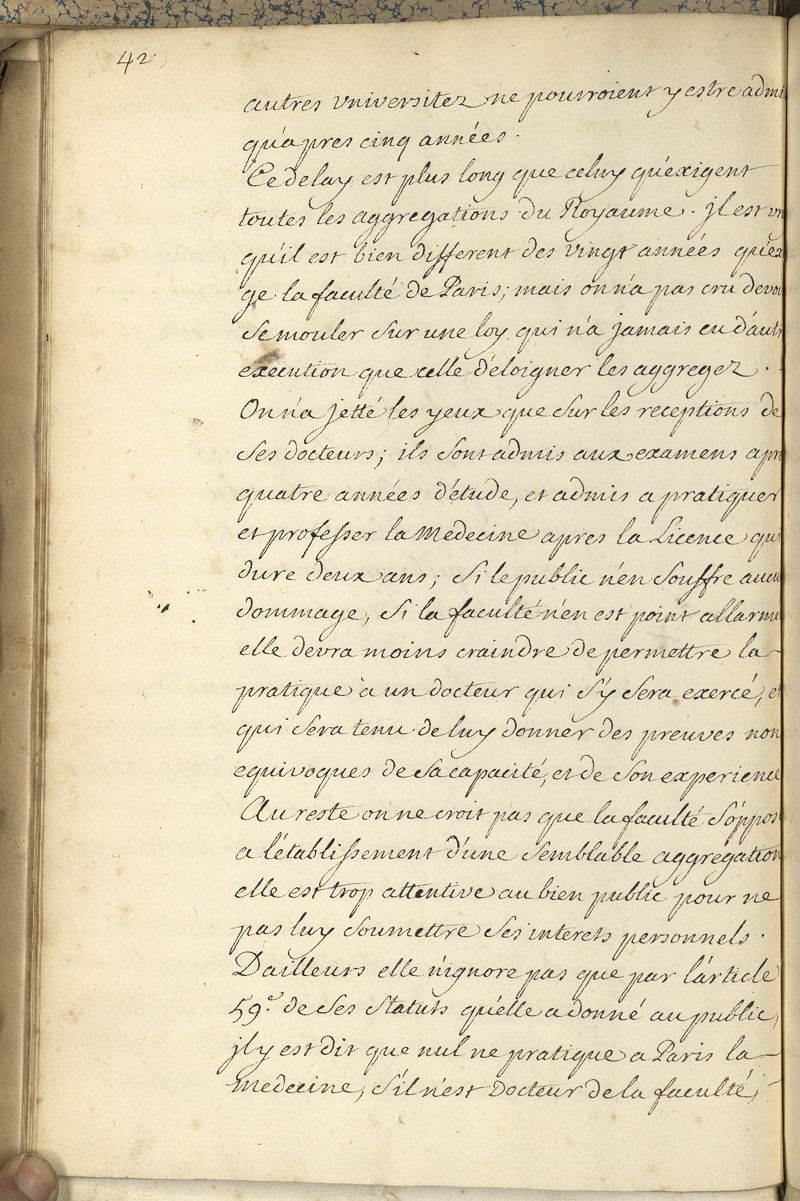 42.
autres vniversitez ne pourroient y estre admi
qu'apres cinq années.
Ce delay est plus long que celuy qu'exigent
toutes les aggregations du Royaume. jl est vr
qu'il est bien different des vingt années qu'exi
ge la faculté de Paris; mais on n'a pas cru devoi
se mouler sur une loy qui n'a jamais eu d'autr
execution que celle d'éloigner les aggregez.
On n'a jetté les yeux que sur les receptions de
ses docteurs; ils sont admis aux examens apre
quatre années d'étude, et admis a pratiquer
et professer la Medecine apres la Licence qui
dure deux ans; si le public n'en souffre aucu
dommage, si la faculté n'en est point allarmé
elle devra moins craindre de permettre la
pratique à un docteur qui s'y sera exercé, et
qui sera tenu de luy donner des preuves non
equivoques de sa capacité, et de son experience
Au reste on ne croit pas que la faculté s'oppos
a l'établissement d'une semblable aggrégation
elle est trop attentive au bien public pour ne
pas luy soumettre ses interets personnels.
D'ailleurs elle n'ignore pas que par l'article
59.e de ses statuts qu'elle a donné au public,
jl y est dit que nul ne pratique a Paris la
medecine, s'il n'est Docteur de la faculté,